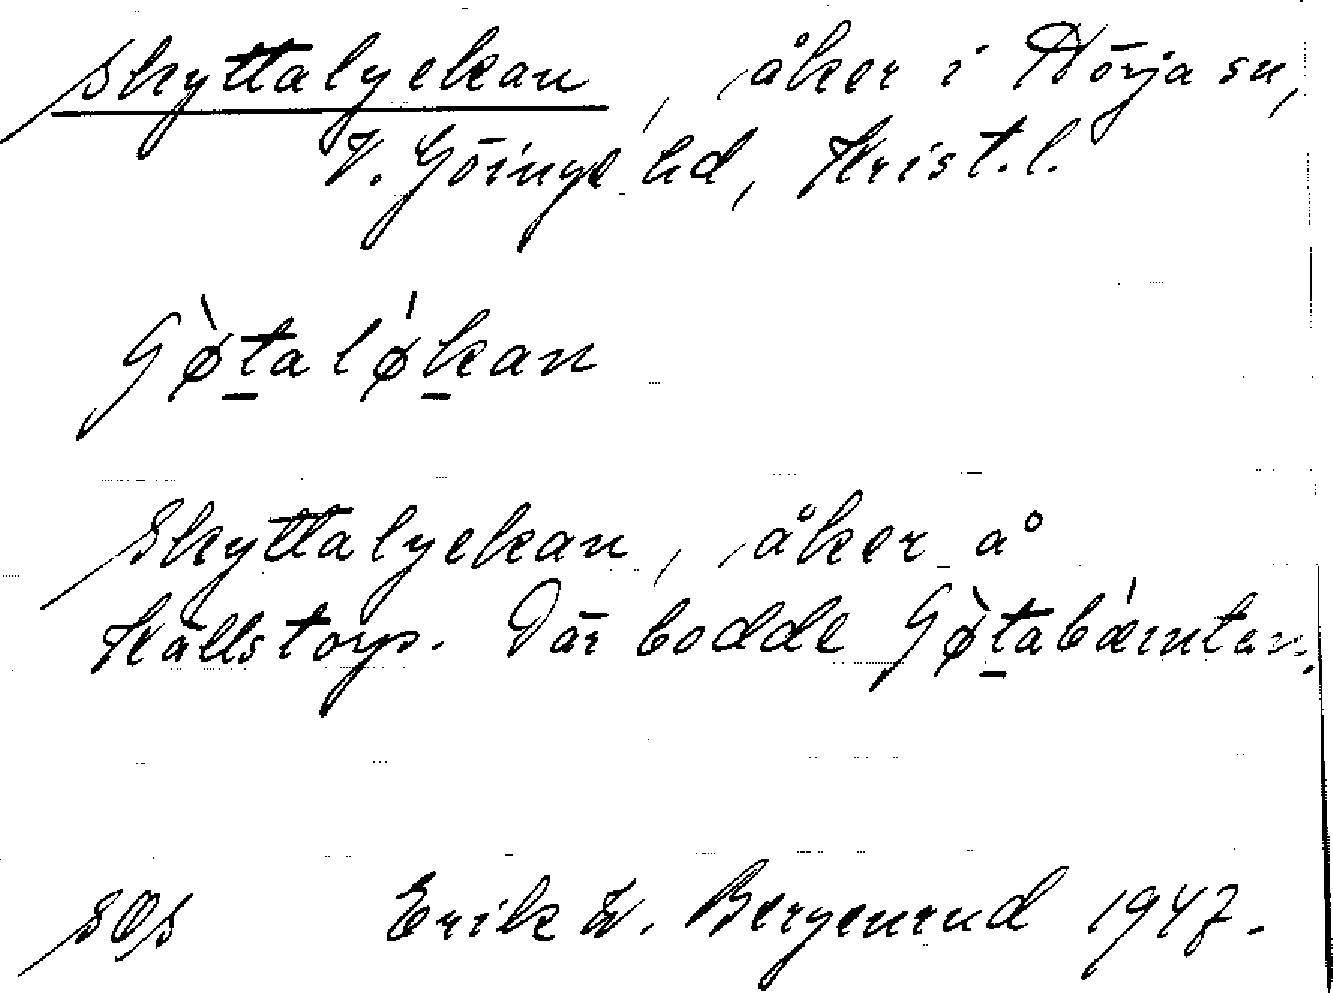 Skyttalyckan, åker i Hörja sn,
V. Göinge hd, Krist. l.
Gø̀t̲alǿk̲an
Skyttalyckan, åker å
Källstorp. Där bodde Gø̀t̲abǽnten.
SOS Erik W. Bergenrud 1947.